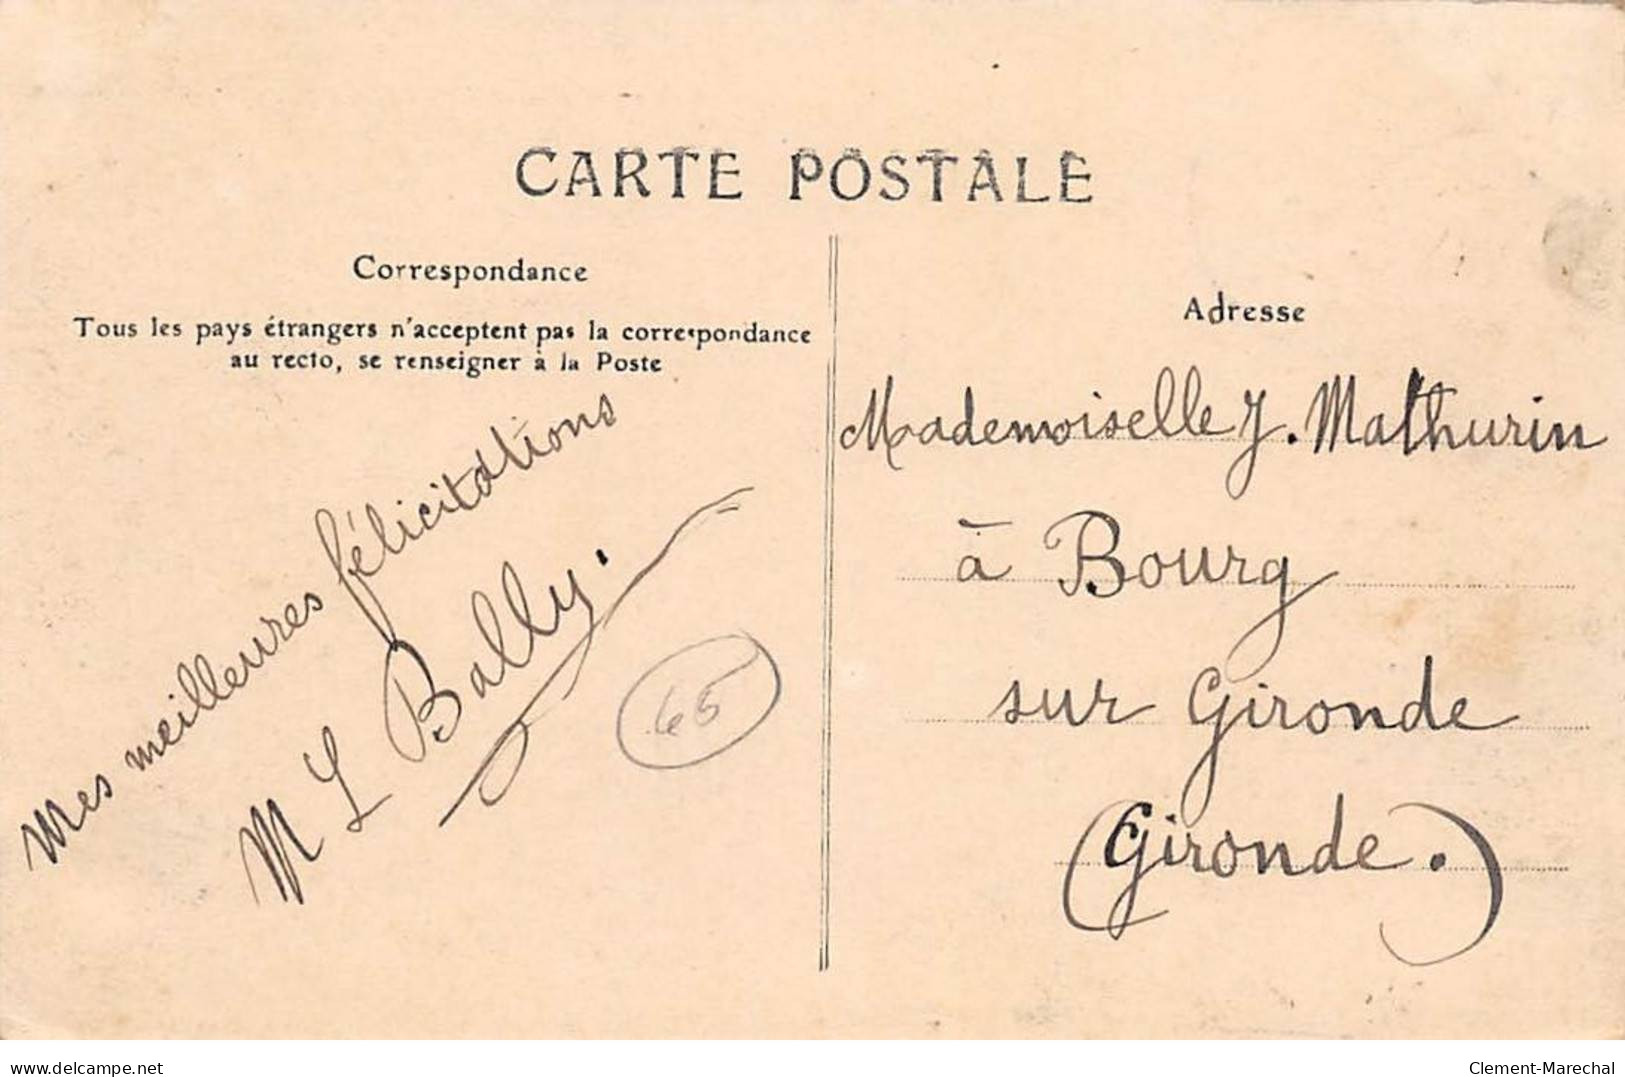 CARTE POSTALE
Correspondance
Tous les pays étrangers n'acceptent pas la correspondance
au recto, se renseigner à la Poste
Mes meilleures félicitations
M L Bally.
Adresse
Mademoiselle J. Mathurin
à Bourg
sur Gironde
(Gironde.)
www.delcampe.net
Clement-Marechal